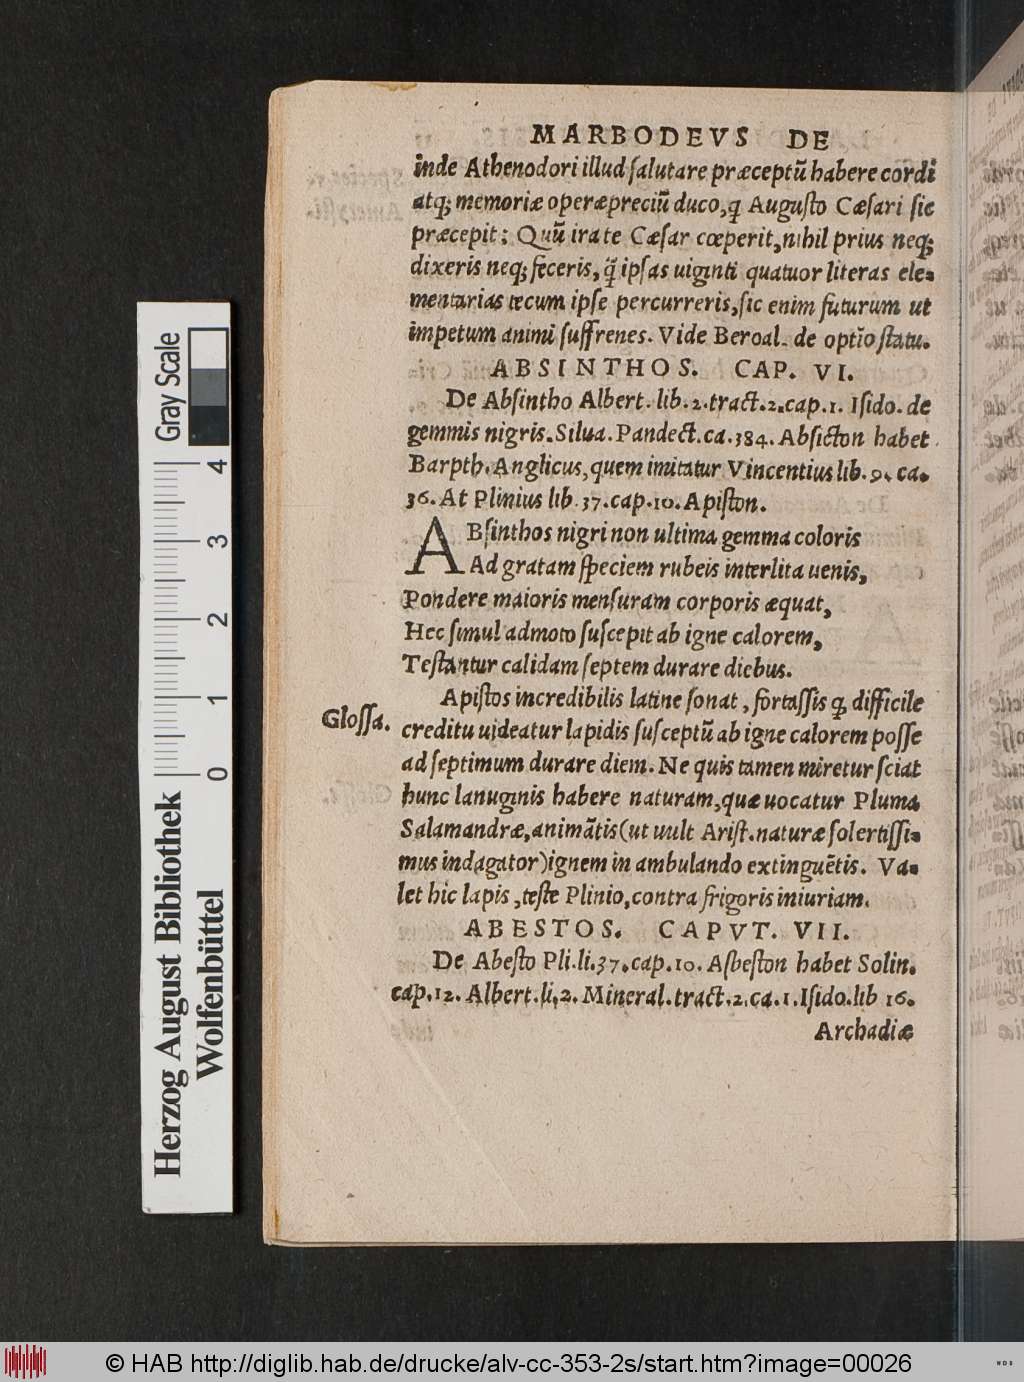 MARBODEVS DE
inde Athenodori illud ſalutare præceptū habere cordi
atq; memoriæ operæpreciū duco, q̨ Auguſto Cæſari ſic
præcepit: Quū irate Cæſar cœperit, nihil prius neq;
dixeris neq; feceris, q̃ ipſas uiginti quatuor literas ele-
mentarias tecum ipſe percurreris, ſic enim futurum ut
impetum animi ſuffrenes. Vide Beroal. de optīo ſtatu.
ABSINTHOS. CAP. VI.
De Abſintho Albert. lib. 2. tract. 2. cap. 1. Iſido. de
gemmis nigris. Silua. Pandect. ca. 384. Abſicton habet
Barpth. Anglicus, quem imitatur Vincentius lib. 9. ca.
36. At Plinius lib. 37. cap. 10. Apiſton.
ABſinthos nigri non ultima gemma coloris
Ad gratam ſpeciem rubeis interlita uenis,
Pondere maioris menſuram corporis æquat,
Hec ſimul admoto ſuſcepit ab igne calorem,
Teſtantur calidam ſeptem durare diebus.
Apiſtos incredibilis latine ſonat, fortaſſis q̨ difficile
Gloſſa.
creditu uideatur lapidis ſuſceptū ab igne calorem poſſe
ad ſeptimum durare diem. Ne quis tamen miretur ſciat
hunc lanuginis habere naturam, quæ uocatur Pluma
Salamandræ, animātis (ut uult Ariſt. naturæ ſolertiſſi-
mus indagator) ignem in ambulando extinguētis. Va-
let hic lapis, teſte Plinio, contra frigoris iniuriam.
ABESTOS. CAPVT. VII.
De Abeſto Pli. li. 37. cap. 10. Aſbeſton habet Solin.
cap. 12. Albert. li. 2. Mineral. tract. 2. ca. 1. Iſido. lib 16.
Archadiæ
Herzog August Bibliothek
Wolfenbüttel
0 1 2 3 4
Gray Scale
© HAB http://diglib.hab.de/drucke/alv-cc-353-2s/start.htm?image=00026